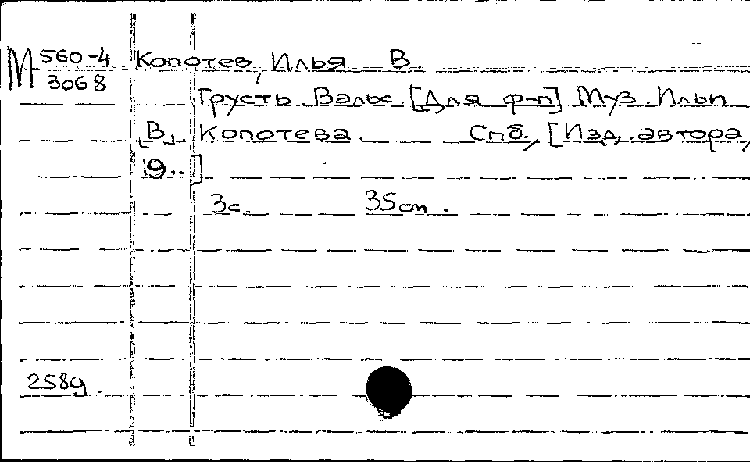 М 560-4 Копотев, Илья В.
3068
Грусть. Вальс [Для ф-п] Муз. Ильи
[В.] Копотева. Спб., [Изд. автора,
19..]
3с. 35cm.
258g.